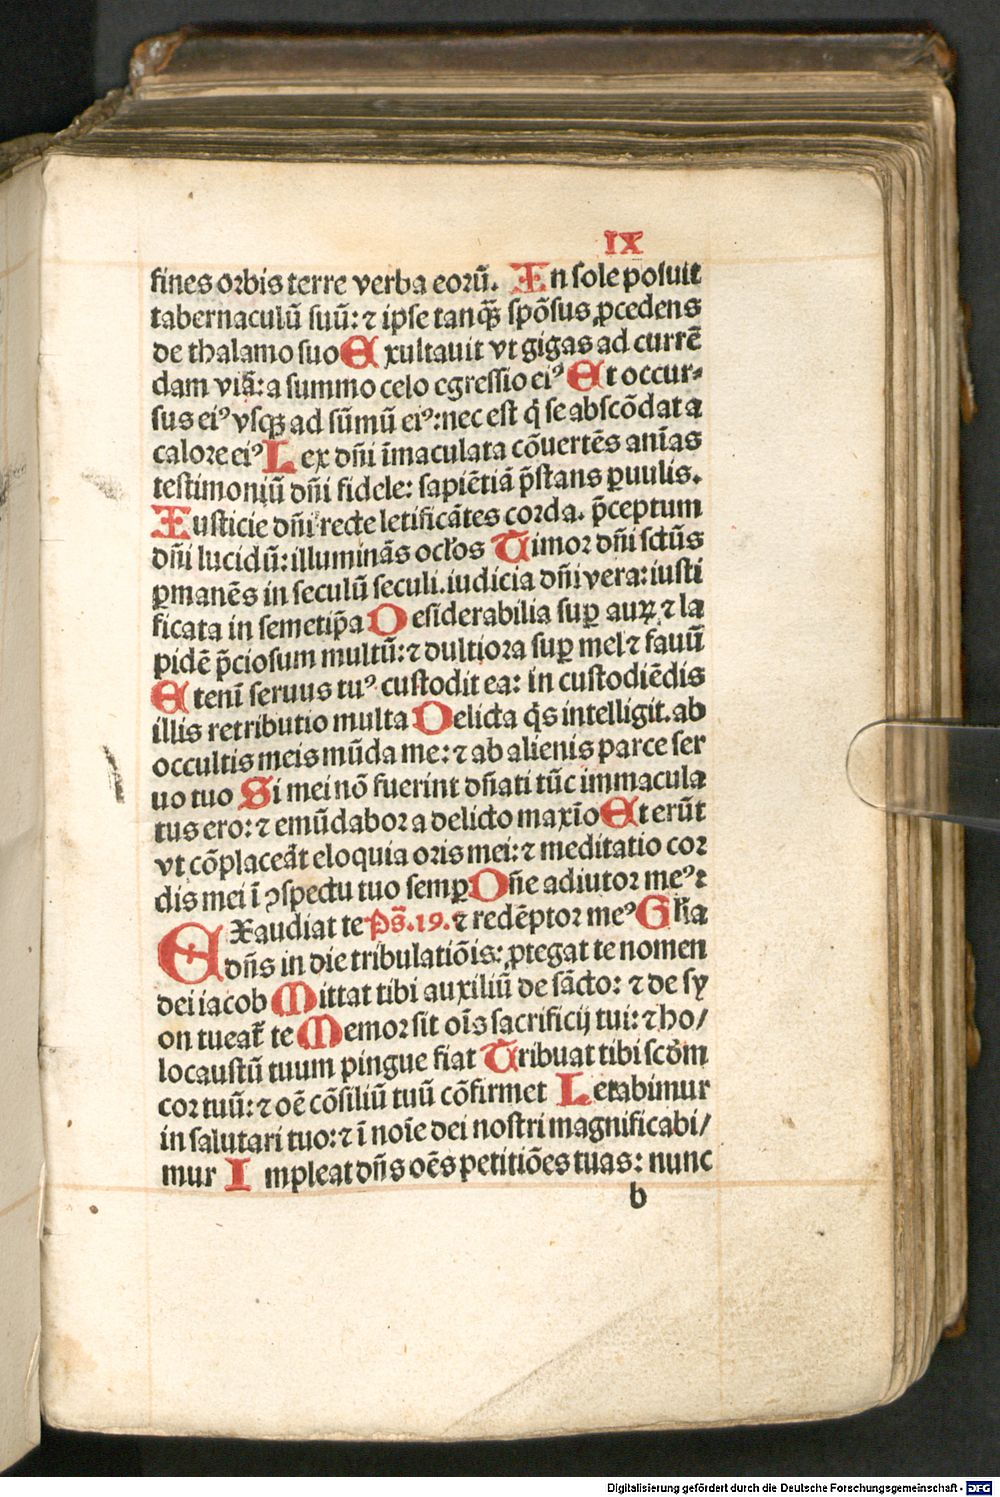 IX
fines orbis terre verba eorū. In sole posuit
tabernaculū suū: ⁊ ipse tanqꝫ̄ spōsus ꝓcedens
de thalamo suo Exultauit vt gigas ad currē
dam viā: a summo celo egressio eiꝰ Et occur⸗
sus eiꝰ vsqꝫ ad sūmū eiꝰ: nec est q̇ se abscōdat a
calore eiꝰ Lex dn̄i īmaculata cōuertēs aīas
testimoniū dn̄i fidele: sapiētiā p̄stans ꝑuulis.
Iusticie dn̄i recte letificātes corda. p̄ceptum
dn̄i lucidū: illuminās ocl'os Timor dn̄i sctūs
ꝑmanēs in seculū seculi. iudicia dn̄i vera: iusti
ficata in semetip̄a Desiderabilia suꝑ auꝝ ⁊ la
pidē p̄ciosum multū: ⁊ dultiora suꝑ mel ⁊ fauū
Etenī seruus tuꝰ custodit ea: in custodiēdis
illis retributio multa Delicta q̇s intelligit. ab
occultis meis mūda me: ⁊ ab alienis parce ser
uo tuo Si mei nō fuerint dn̄ati tūc immacula
tus ero: ⁊ emūdabor a delicto maxīo Et erūt
vt cōplaceāt eloquia oris mei: ⁊ meditatio cor
dis mei ī ꝯspectu tuo semꝑ Dn̄e adiutor meꝰ ⁊
EXaudiat te Ps̄.19. ⁊ redēptor meꝰ Gl'ia
dn̄s in die tribulatiōis: ꝓtegat te nomen
dei iacob Mittat tibi auxiliū de sācto: ⁊ de sy
on tueat᷑ te Memor sit oīs sacrificij tui: ⁊ ho/
locaustū tuum pingue fiat Tribuat tibi scd̄m
cor tuū: ⁊ oē cōsiliū tuū cōfirmet Letabimur
in salutari tuo: ⁊ ī noīe dei nostri magnificabi/
mur Impleat dn̄s oēs petitiōes tuas: nunc
b
Digitalisierung gefördert durch die Deutsche Forschungsgemeinschaft - DFG